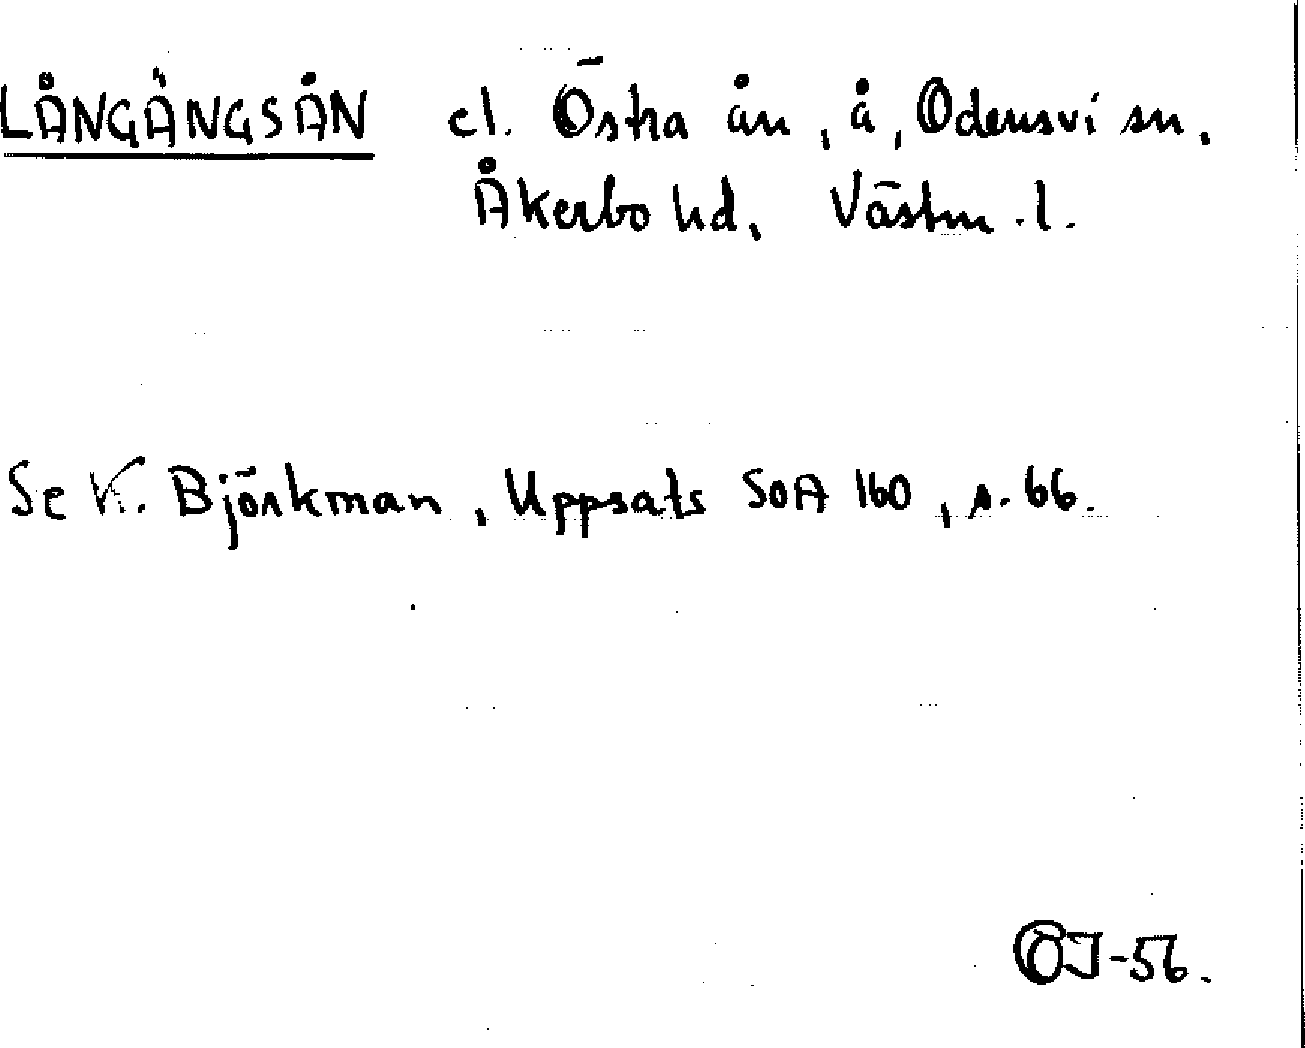 LÅNGÄNGSÅN el. Östra ån, å, Odensvi sn.
Åkerbo hd, Västm. l.
Se K. Björkman, Uppsats SOA 160, s. 66.
OJ-56.